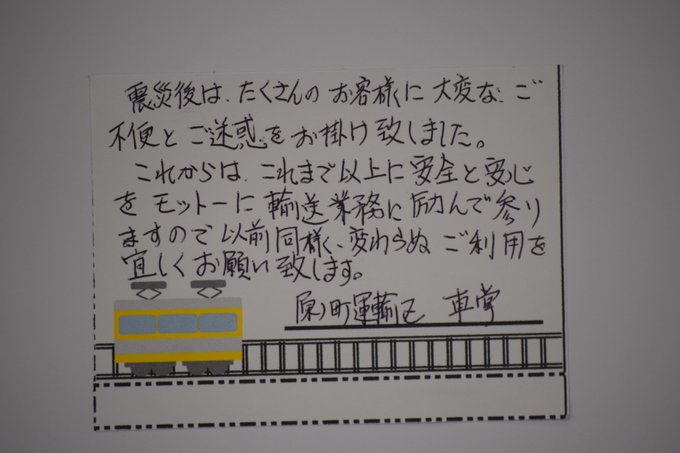 震災後は、たくさんの お客様に 大変な ご
不便と ご迷惑を お掛け致しました。
これからは、これまで以上に 安全と 安心
を モットーに 輸送業務に 励んで参り
ますので 以前同様、変わらぬ ご利用を
宜しく お願い 致します。
原ノ町運輸区 車掌